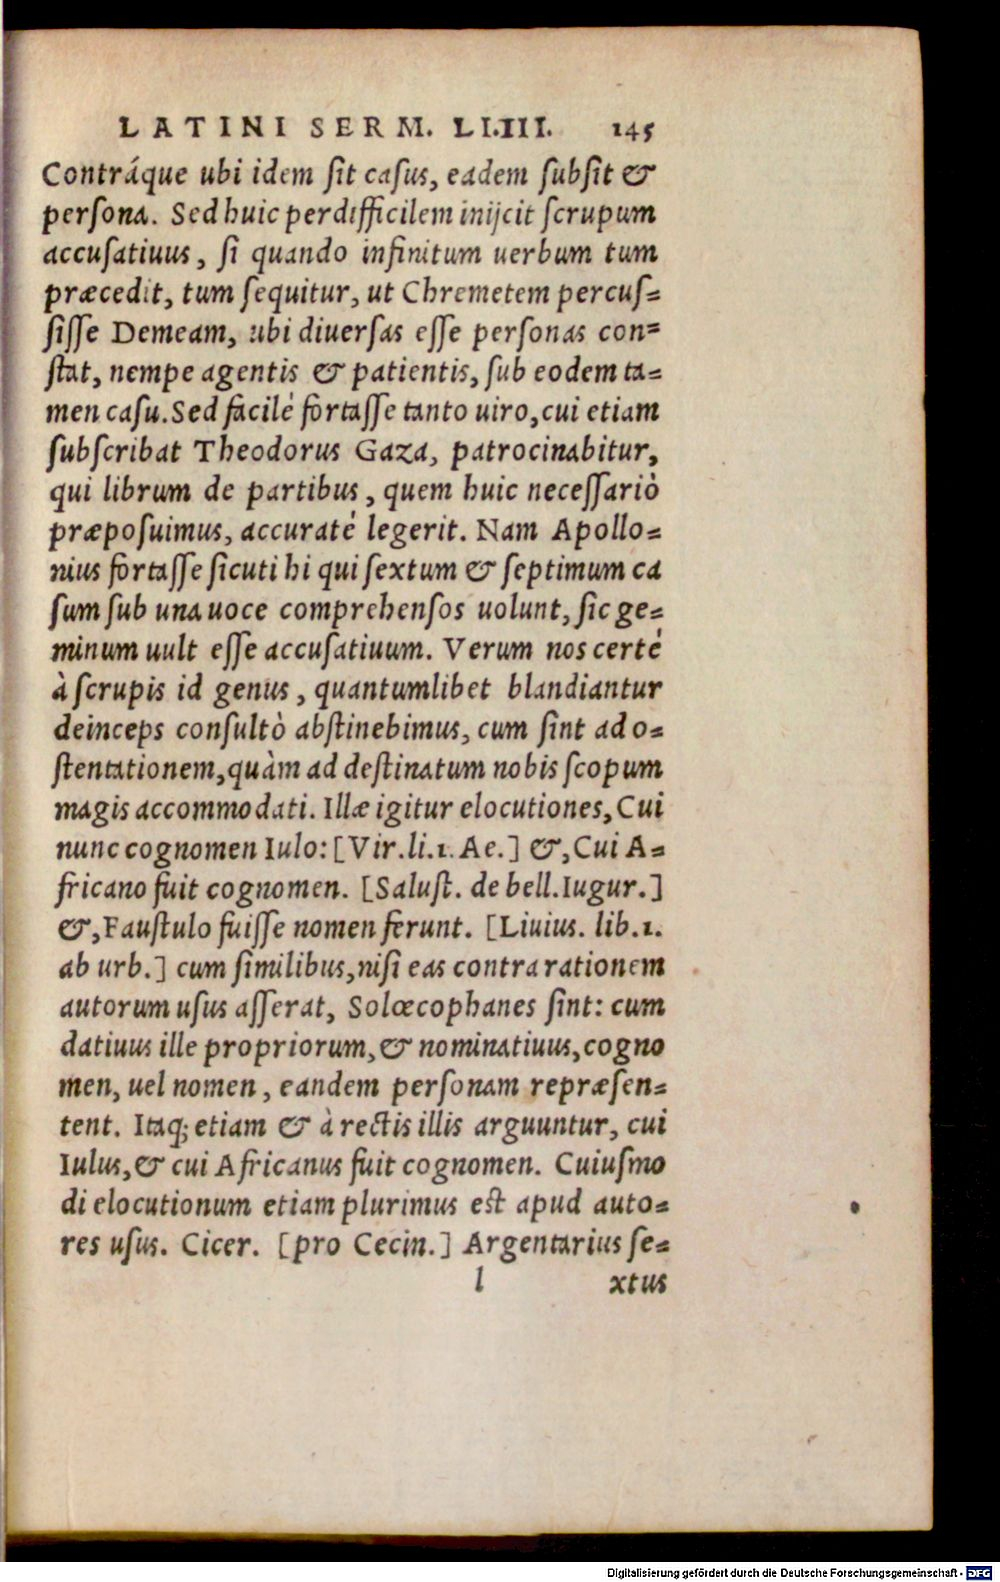 LATINI SERM. LI.III. 145
Contráque ubi idem ſit caſus, eadem ſubſit &
perſona. Sed huic perdifficilem inijcit ſcrupum
accuſatiuus, ſi quando infinitum uerbum tum
præcedit, tum ſequitur, ut Chremetem percuſ=
ſiſſe Demeam, ubi diuerſas eſſe perſonas con=
ſtat, nempe agentis & patientis, ſub eodem ta=
men caſu. Sed facilé fortaſſe tanto uiro, cui etiam
ſubſcribat Theodorus Gaza, patrocinabitur,
qui librum de partibus, quem huic neceſſariò
præpoſuimus, accuraté legerit. Nam Apollo=
nius fortaſſe ſicuti hi qui ſextum & ſeptimum ca
ſum ſub una uoce comprehenſos uolunt, ſic ge=
minum uult eſſe accuſatiuum. Verum nos certé
à ſcrupis id genus, quantumlibet blandiantur
deinceps conſultò abſtinebimus, cum ſint ad o=
ſtentationem, quàm ad deſtinatum nobis ſcopum
magis accommodati. Illæ igitur elocutiones, Cui
nunc cognomen Iulo: [Vir. li. 1. Ae.] &, Cui A=
fricano fuit cognomen. [Saluſt. de bell. Iugur.]
&, Fauſtulo fuiſſe nomen ferunt. [Liuius. lib. 1.
ab urb.] cum ſimilibus, niſi eas contra rationem
autorum uſus aſſerat, Solœcophanes ſint: cum
datiuus ille propriorum, & nominatiuus, cogno
men, uel nomen, eandem perſonam repræſen=
tent. Itaq; etiam & à rectis illis arguuntur, cui
Iulus, & cui Africanus fuit cognomen. Cuiuſmo
di elocutionum etiam plurimus eſt apud auto=
res uſus. Cicer. [pro Cecin.] Argentarius ſe=
l xtus
Digitalisierung gefördert durch die Deutsche Forschungsgemeinschaft - DFG